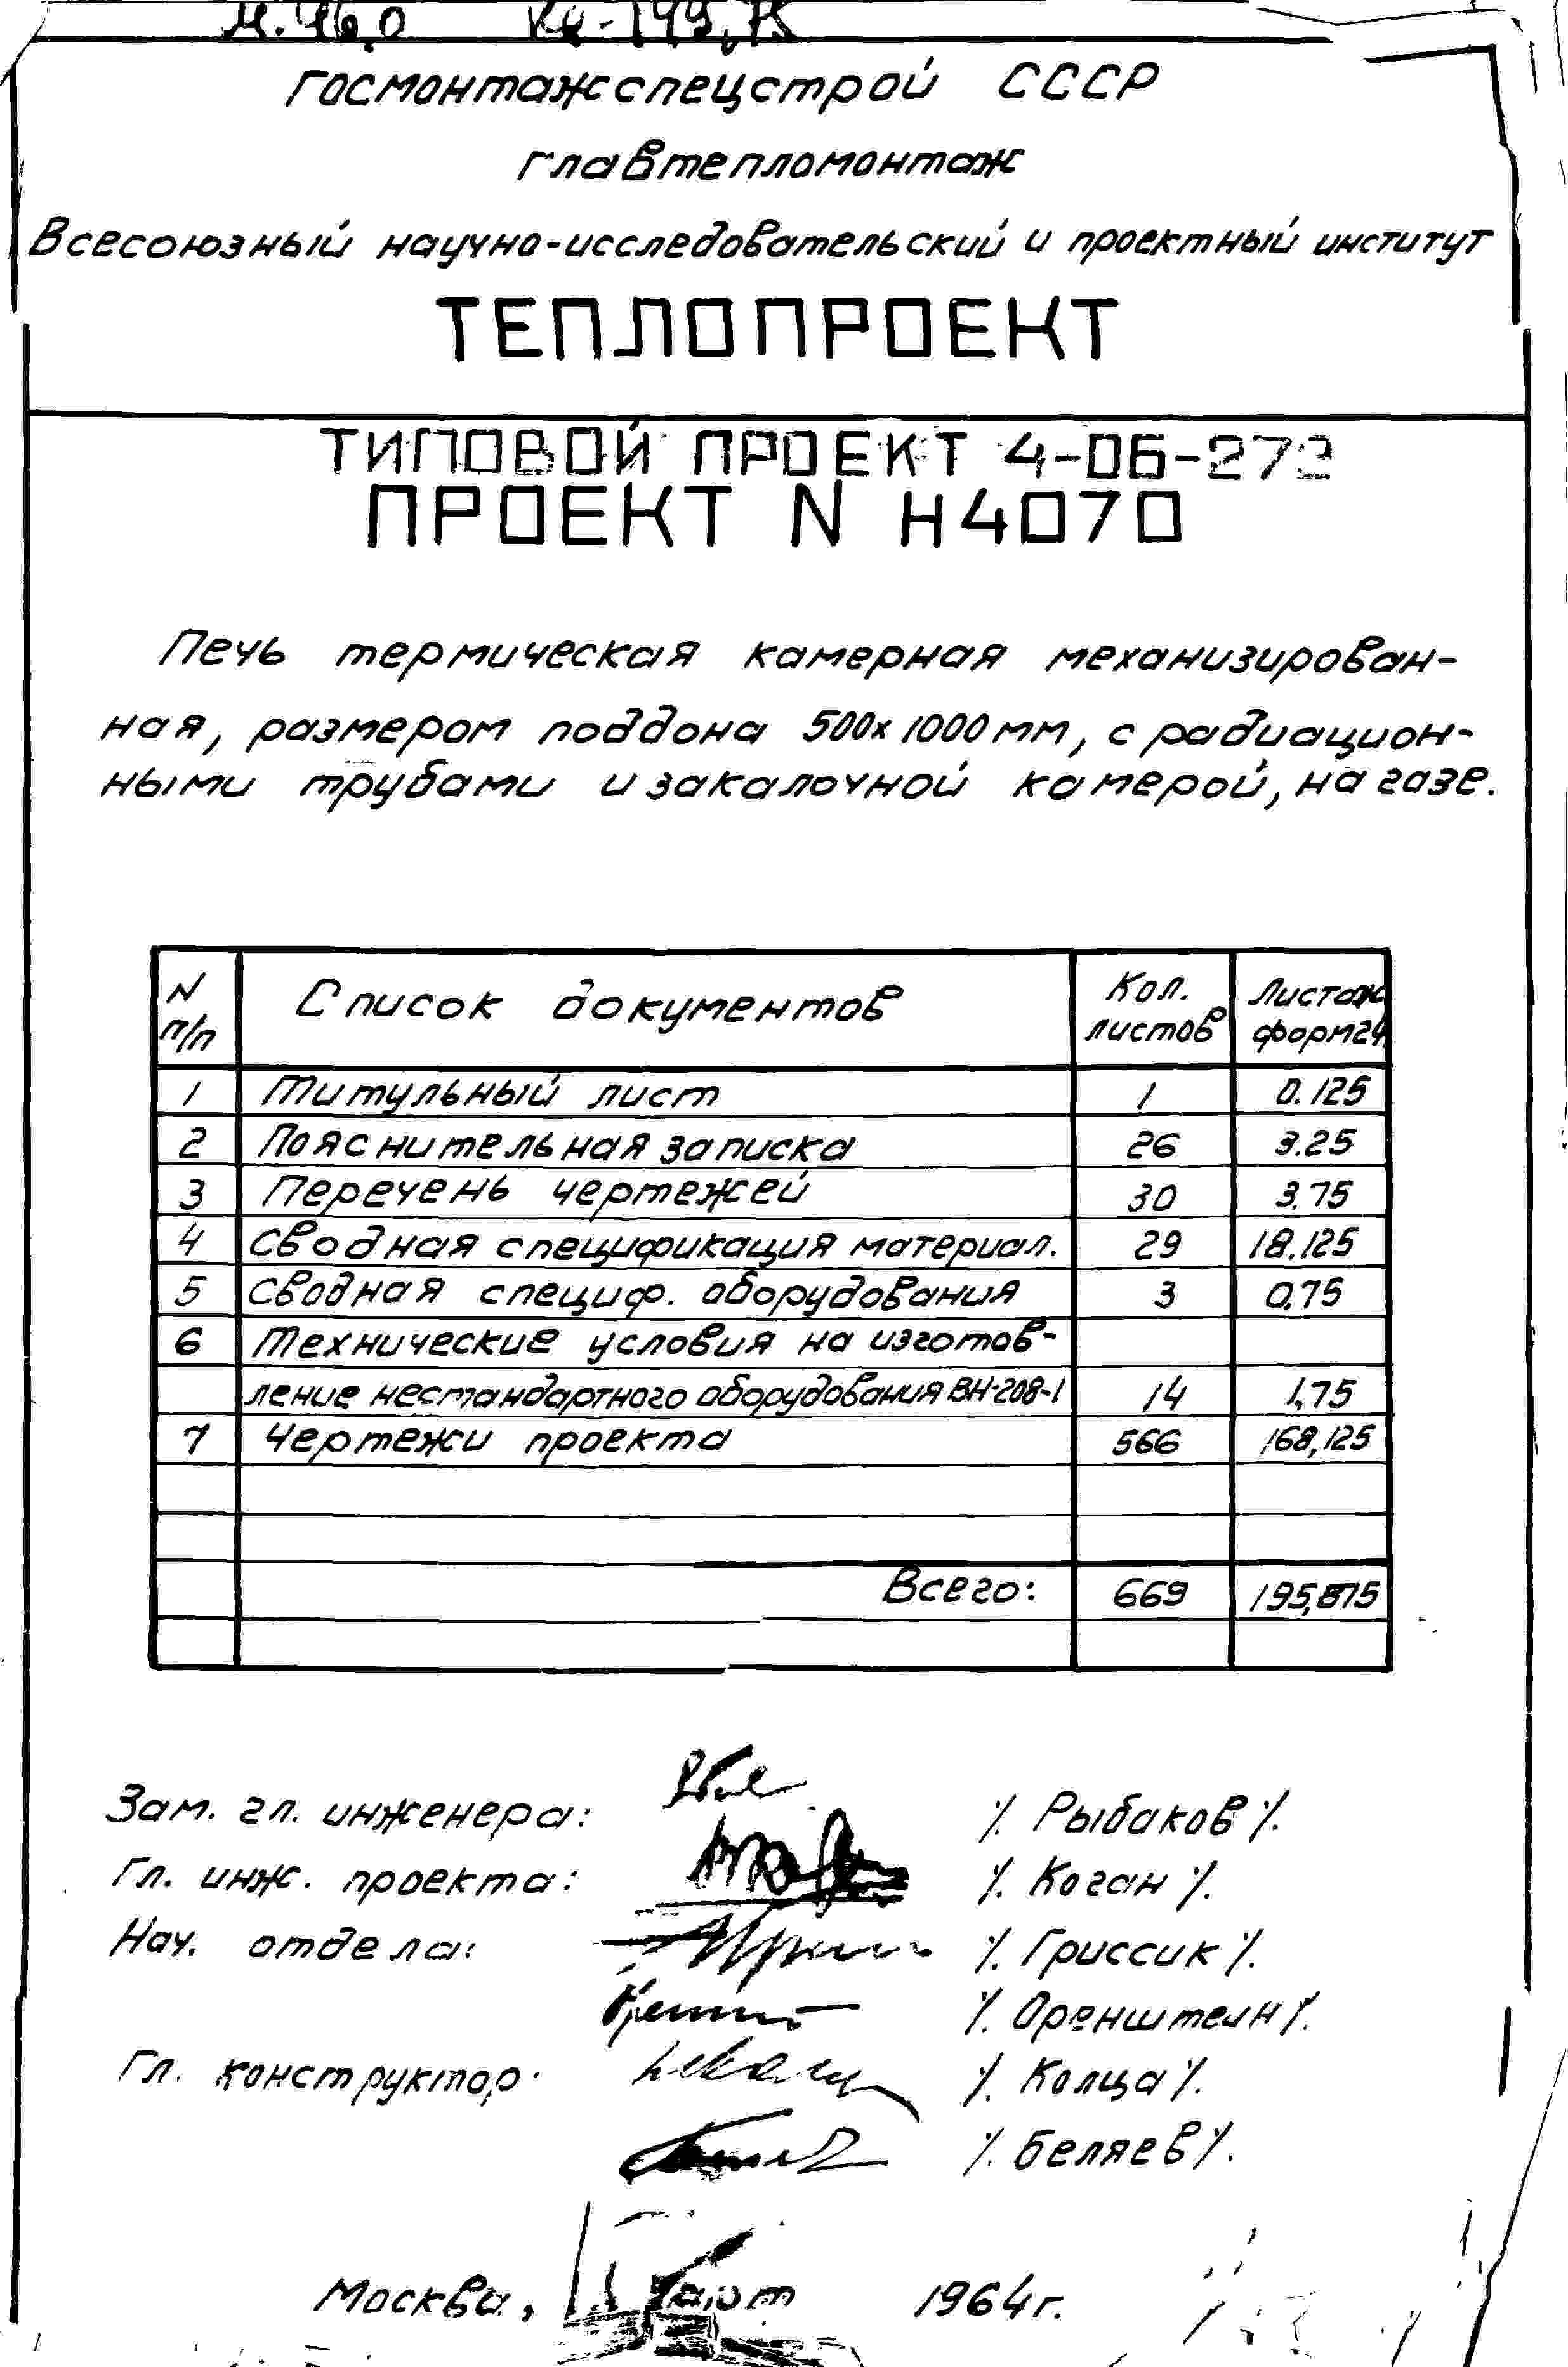 Госмонтажспецстрой СССР
Главтепломонтаж
Всесоюзный научно-исследовательский и проектный институт
ТЕПЛОПРОЕКТ
ТИПОВОЙ ПРОЕКТ 4-06-272
ПРОЕКТ N Н4070
Печь термическая камерная механизирован-
ная, размером поддона 500х1000мм, с радиацион-
ными трубами и закалочной камерой, на газе.
N п/п Список документов Кол. листов Листаж форм24
1 Титульный лист 1 0.125
2 Пояснительная записка 26 3.25
3 Перечень чертежей 30 3.75
4 Сводная спецификация материал. 29 18.125
5 Сводная специф. оборудования 3 0,75
6 Технические условия на изготов-
ление нестандартного оборудования ВН-208-1 14 1,75
7 Чертежи проекта 566 168,125
Всего: 669 195,875
Зам. гл. инженера: /. Рыбаков /.
Гл. инж. проекта: /. Коган /.
Нач. отдела: /. Гриссик /.
/. Оренштейн /.
Гл. конструктор. /. Колца /.
/. Беляев /.
Москва, 1964г.